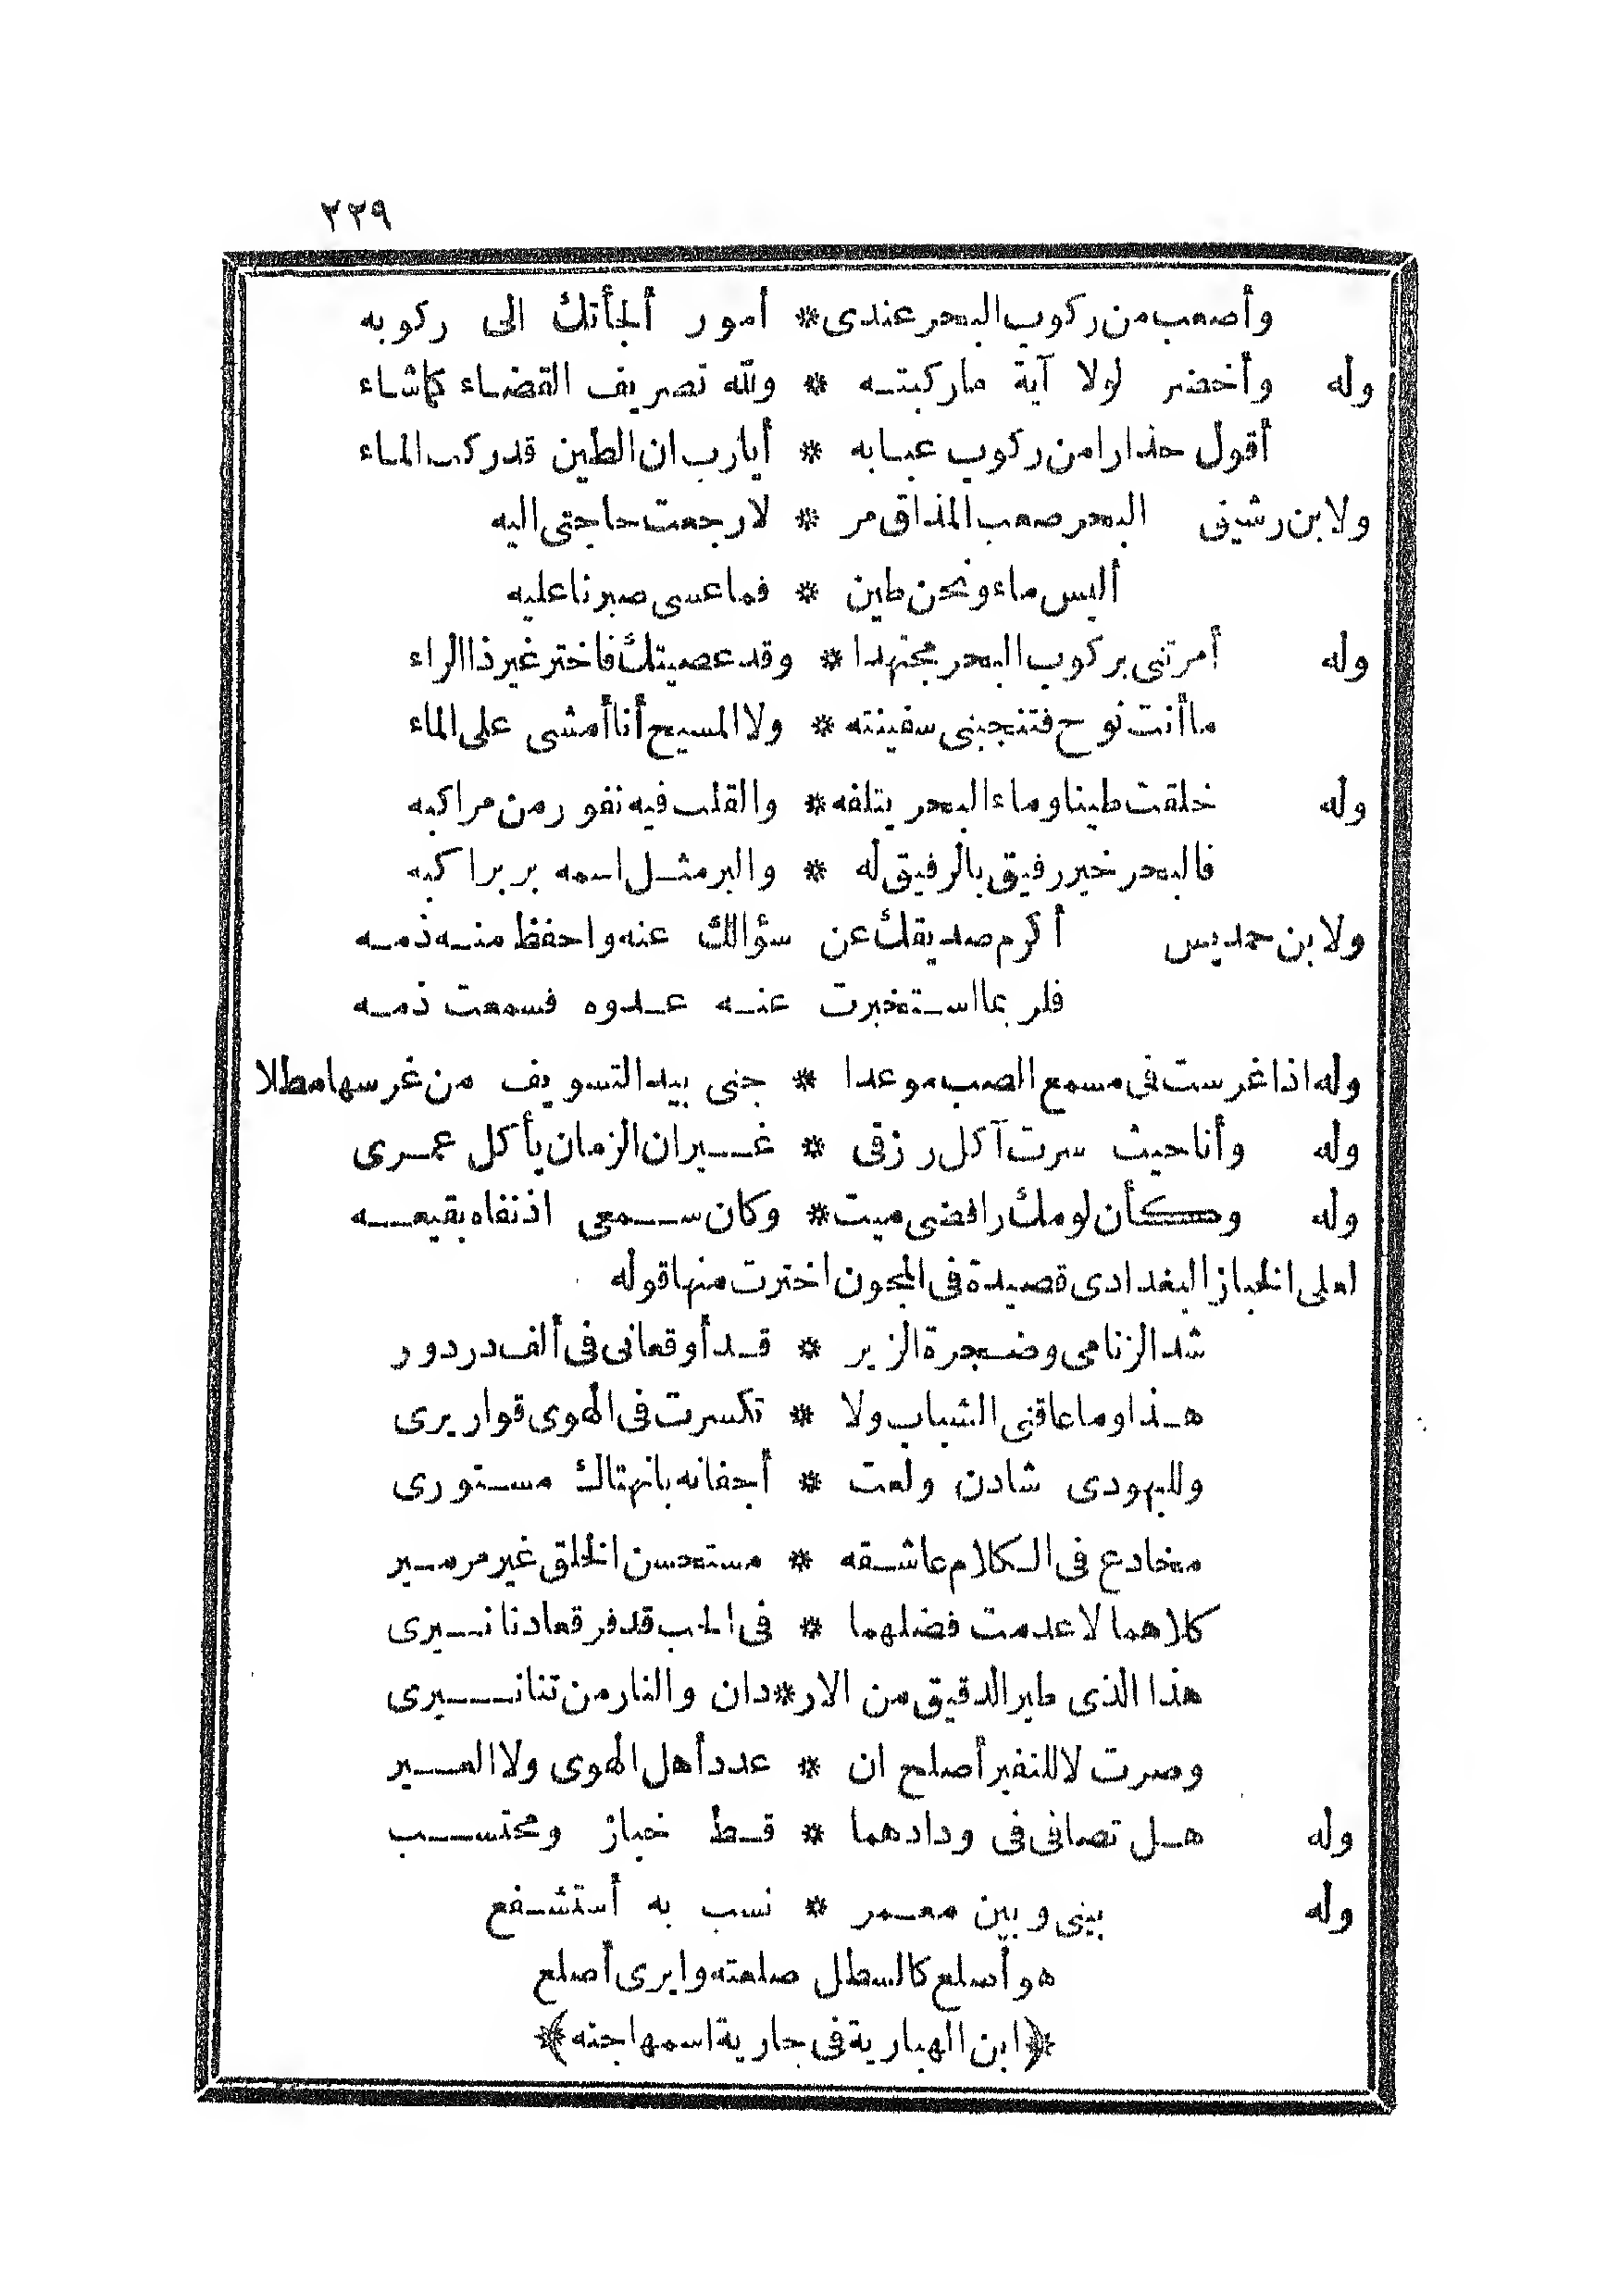 ٢٢٩
وأصعب من ركوب البحر عندى * أمور ألجأتك الى ركوبه
وله وأخضر لولا آية ماركبته * ولله تصريف القضاء كماشاء
أقول حذارا من ركوب عبابه * أيارب ان الطين قدركب الماء
ولابن رشيق البحر صعب المذاق مر * لارجعت حاجتى اليه
أليس ماء ونحن طين * فماعسى صبرنا عليه
وله أمرتنى بركوب البحر مجتهدا * وقد عصيتك فاختر غير ذا الراء
ما أنت نوح فتنجينى سفينته * ولا المسيح أنا أمشى على الماء
وله خلقت طينا وماء البحر يتلفه * والقلب فيه نفور من مراكبه
فالبحر خير رفيق بالرفيق له * والبر مثل اسمه بر براكبه
ولابن حمديس أكرم صديقك عن سؤالك عنه واحفظ منه ذمه
فلربما استخبرت عنه عدوه فسمعت ذمه
وله اذا غرست فى مسمع الصب موعدا * جنى بيد التسويف من غرسها مطلا
وله وأنا حيث سرت آكل رزقى * غير ان الزمان يأكل عمرى
وله وكأن لومك رافضى ميت * وكان سمعى اذ نفاه بقيعه
لعلى الخباز البغدادى قصيدة فى المجون اخترت منها قوله
شد الزنامى وضجرة الزير * قد أوقعانى فى ألف دردور
هذا وما عاقنى الشباب ولا * تكسرت فى الهوى قواريرى
ولليهودى شادن ولعت * أجفانه بانهتاك مستورى
مخادع فى الكلام عاشقه * مستحسن الخلق غير مرمير
كلاهما لا عدمت فضلهما * فى الحب قد فرقعا دنانيرى
هذا الذى طير الدقيق من الار * دان والنار من تنانيرى
وصرت لا للنفير أصلح ان * عدد أهل الهوى ولا العير
وله هل تصافى فى ودادهما * قط خباز ومحتسب
وله بينى وبين معمر * نسب به أستشفع
هو أصلع كالسطل صلعته وايرى أصلع
﴿ابن الهبارية فى جارية اسمها جنه﴾